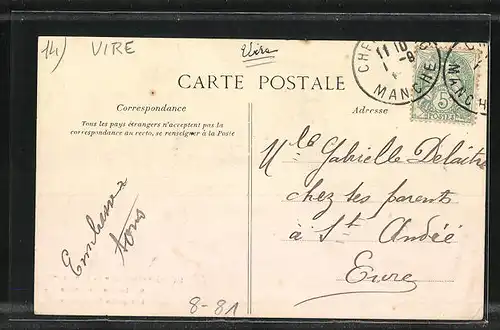 14) VIRE
Vire
CHE
11 10
1 -9
MANCHE
MANCH
5
POSTES
CARTE POSTALE
Correspondance
Tous les pays étrangers n'acceptent pas la
correspondance au recto, se renseigner à la Poste
Adresse
Mlle Gabrielle Delaitre
chez ses parents
à St André
Eure
Embrasse
tous
8-81